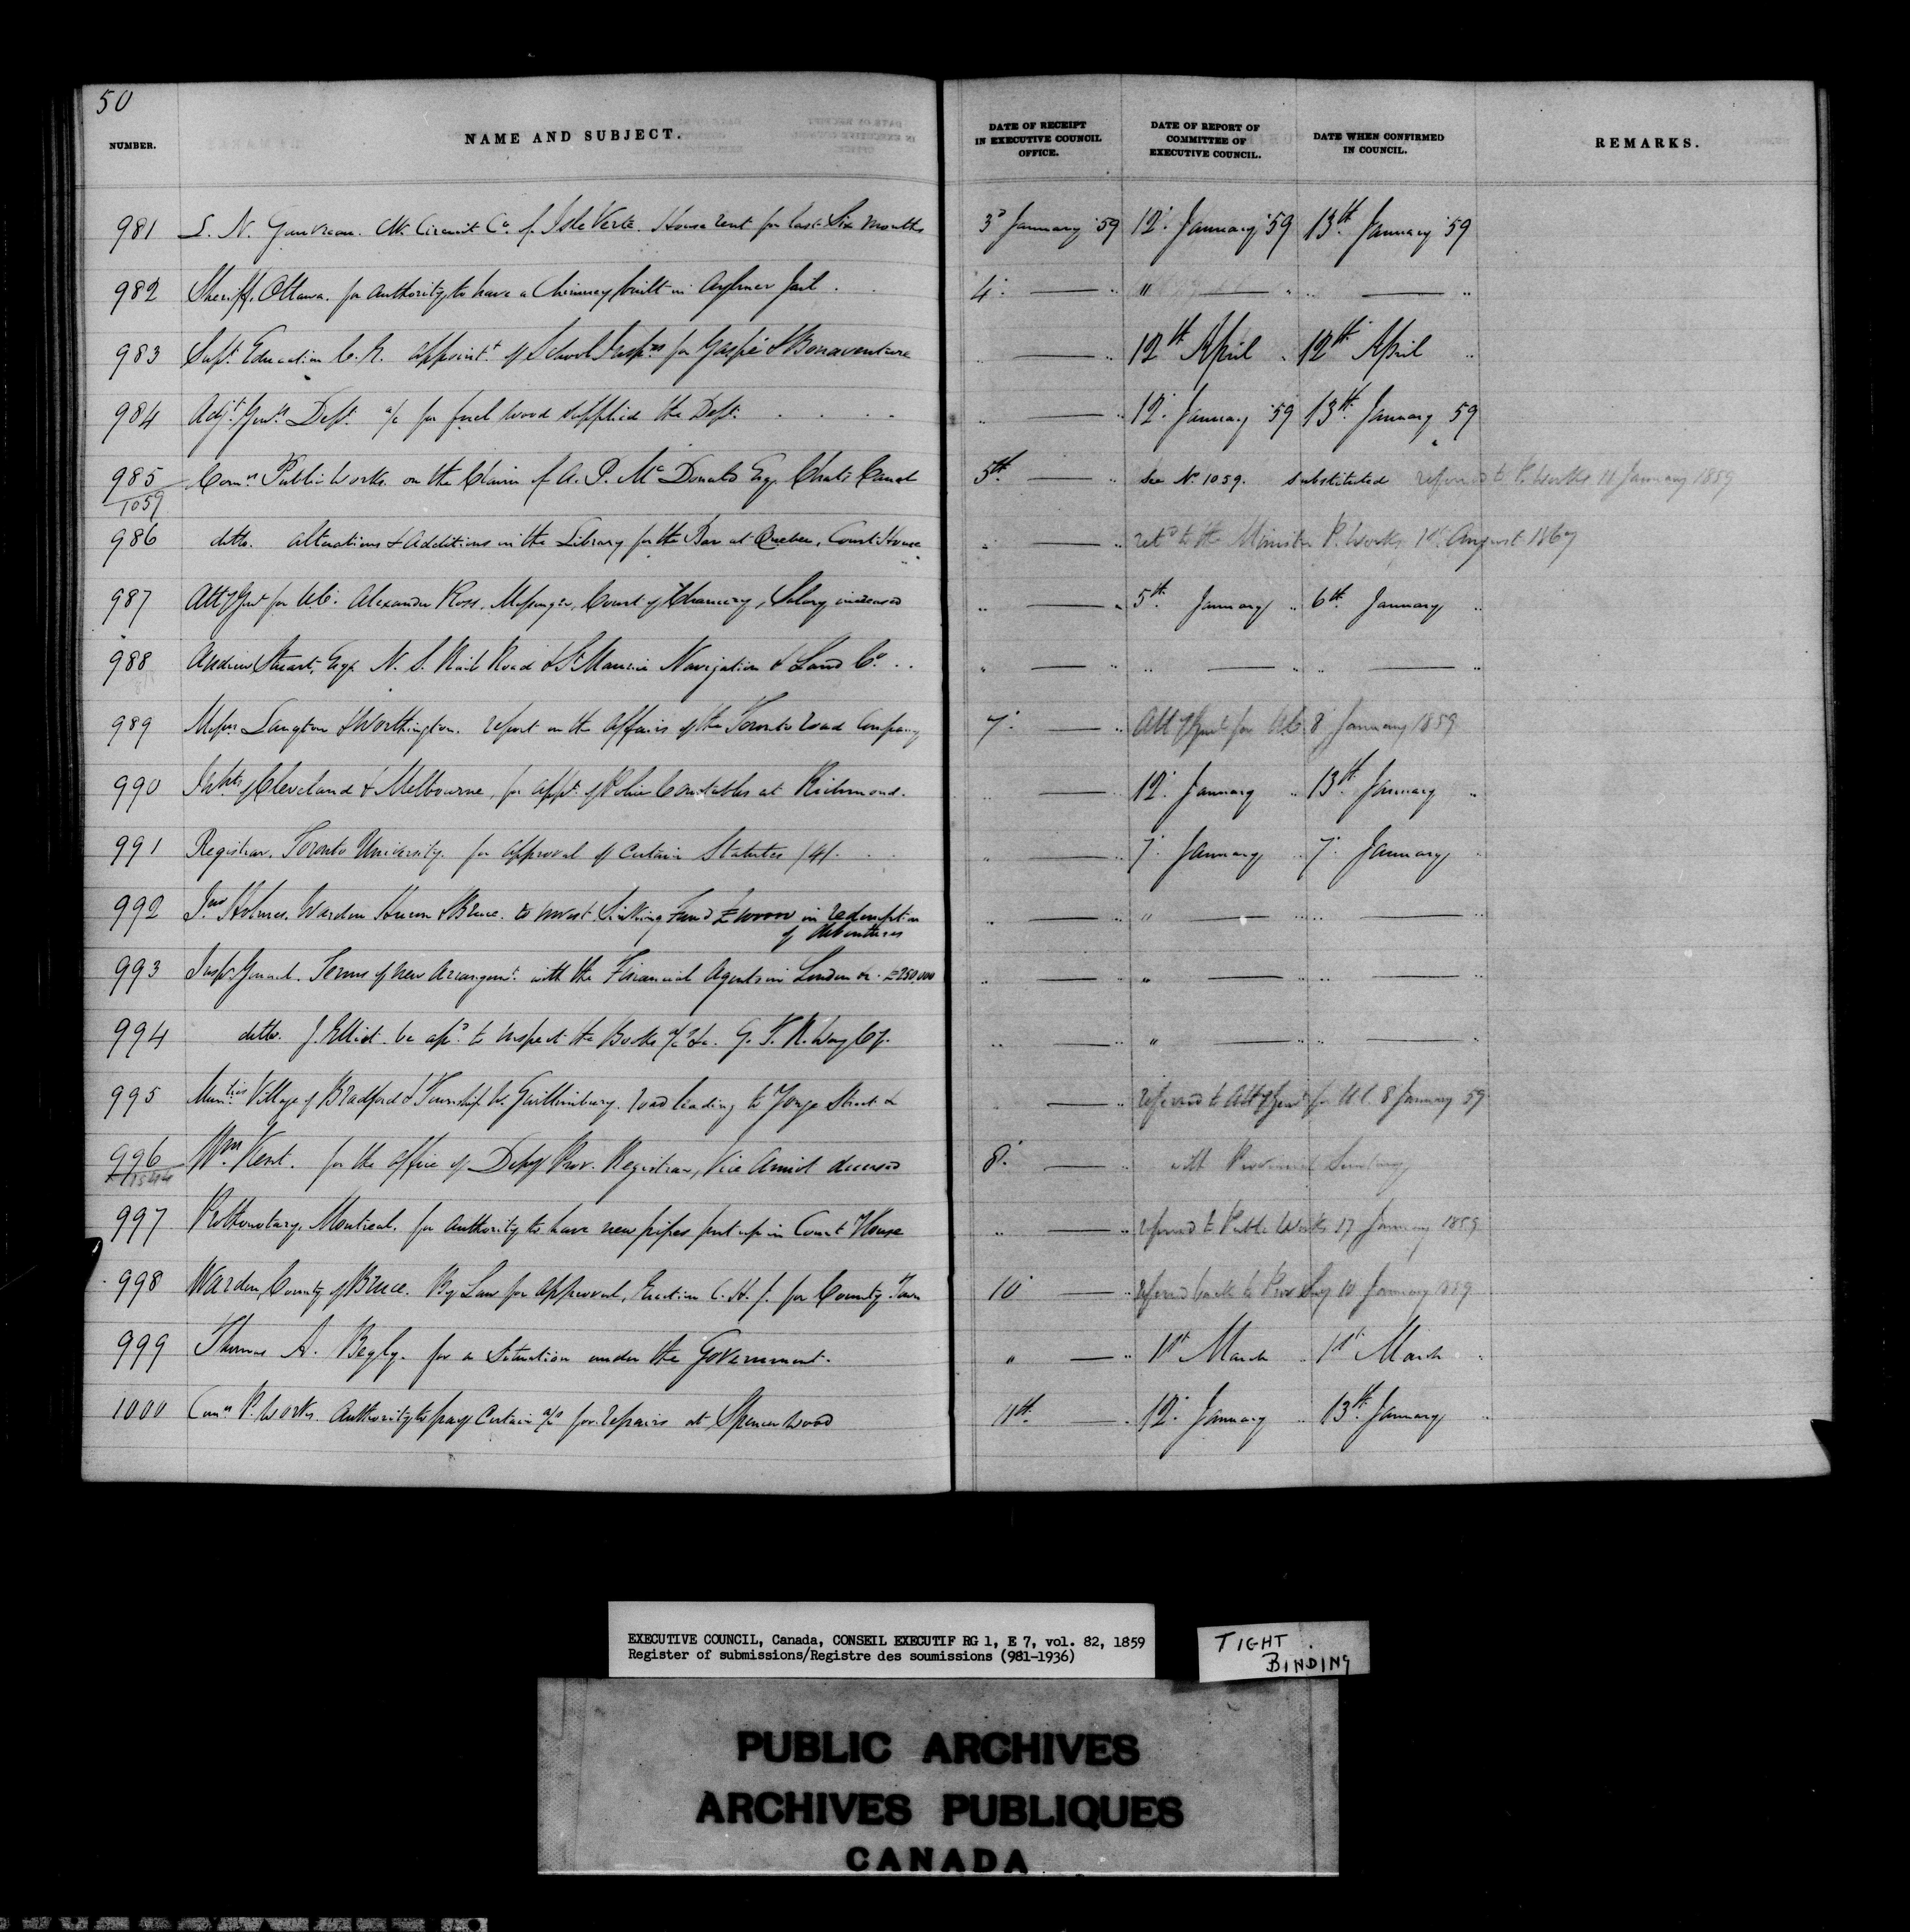 50
NUMBER. NAME AND SUBJECT. DATE OF RECEIPT IN EXECUTIVE COUNCIL OFFICE. DATE OF REPORT OF COMMITTEE OF EXECUTIVE COUNCIL. DATE WHEN CONFIRMED IN COUNCIL. REMARKS.
981 L. N. Gauvreau. Clk. Circuit Ct. of Isle Verte. House rent for last Six months 3d January '59 12th January '59 13th January '59
982 Sheriff, Ottawa. for authority to have a Chimney built in Aylmer Jail . . 4th —— " " —— " " —— "
983 Supt. Education C.E. appointt. of School Inspr for Gaspé & Bonaventure " —— " 12th April " 12th April "
984 Adjt. Genl. Dept. a/c for fuel wood supplied the Dept. . . . . " —— " 12th January '59 13th January 59
985 Comrs Public Works. on the Claim of A. P. McDonald Esq. Chats Canal 5th —— " See No. 1059. substituted referred to P. Works 11 January 1859
1059
986 ditto. alterations & Additions in the Library for the Bar at Quebec, Court House " —— " retd to the Minister P. Works, 1st August 1867
987 Atty Genl for U.C. Alexander Ross, Messenger, Court of Chancery, Salary increased " —— " 5th January " 6th January "
988 Andrew Stuart, Esqr. N. S. Rail Road & St. Maurice Navigation & Land Co. . . " —— " " —— " " —— "
989 Messrs Langton & Worthington. report on the affairs of the Toronto road Company 7th —— " Atty Genl for U.C. 8 January 1859
990 Inhts of Cleveland & Melbourne, for appt. of Police Constables at Richmond. " —— " 12th January " 13th January "
991 Registrar, Toronto University. for approval of certain Statutes (4). . . " —— " 7th January " 7th January "
992 Jno Holmes. Warden Huron & Bruce. to invest Sinking Fund in redemption " —— " " —— " " —— "
of debentures
993 Inspr General. Terms of new arrangemt. with the Financial Agents in London &c. £250,000 " —— " " —— " " —— "
994 ditto. J. Elliot be apd. to inspect the Books a/c &c. G. T. R. Way Cy. " —— " " —— " " —— "
995 Village of Bradford & Township W. Gwillimbury. road leading to Yonge Street &c " —— " referred to Atty Genl for U.C. 8 January 59
996 Wm. Kent. for the office of Depy Prov. Registrar, Vice Amiot deceased 8th —— " with Provincial Secretary
997 Prothonotary, Montreal. for authority to have new pipes put up in Court House " —— " referred to Public Works 17 January 1859
998 Warden, County of Bruce. By Law for approval, Erection C. H. &. for County Town 10 —— " referred back to Prov Secy 10 January 1859
999 Thomas A. Begly. for a Situation under the Government. " —— " 1st March " 1st March "
1000 Comrs P. Works. Authority to pay certain a/cs for repairs at Spencer Wood 11th —— " 12th January " 13th January "
EXECUTIVE COUNCIL, Canada, CONSEIL EXECUTIF RG 1, E 7, vol. 82, 1859
Register of submissions/Registre des soumissions (981-1936)
TIGHT
BINDING
PUBLIC ARCHIVES
ARCHIVES PUBLIQUES
CANADA